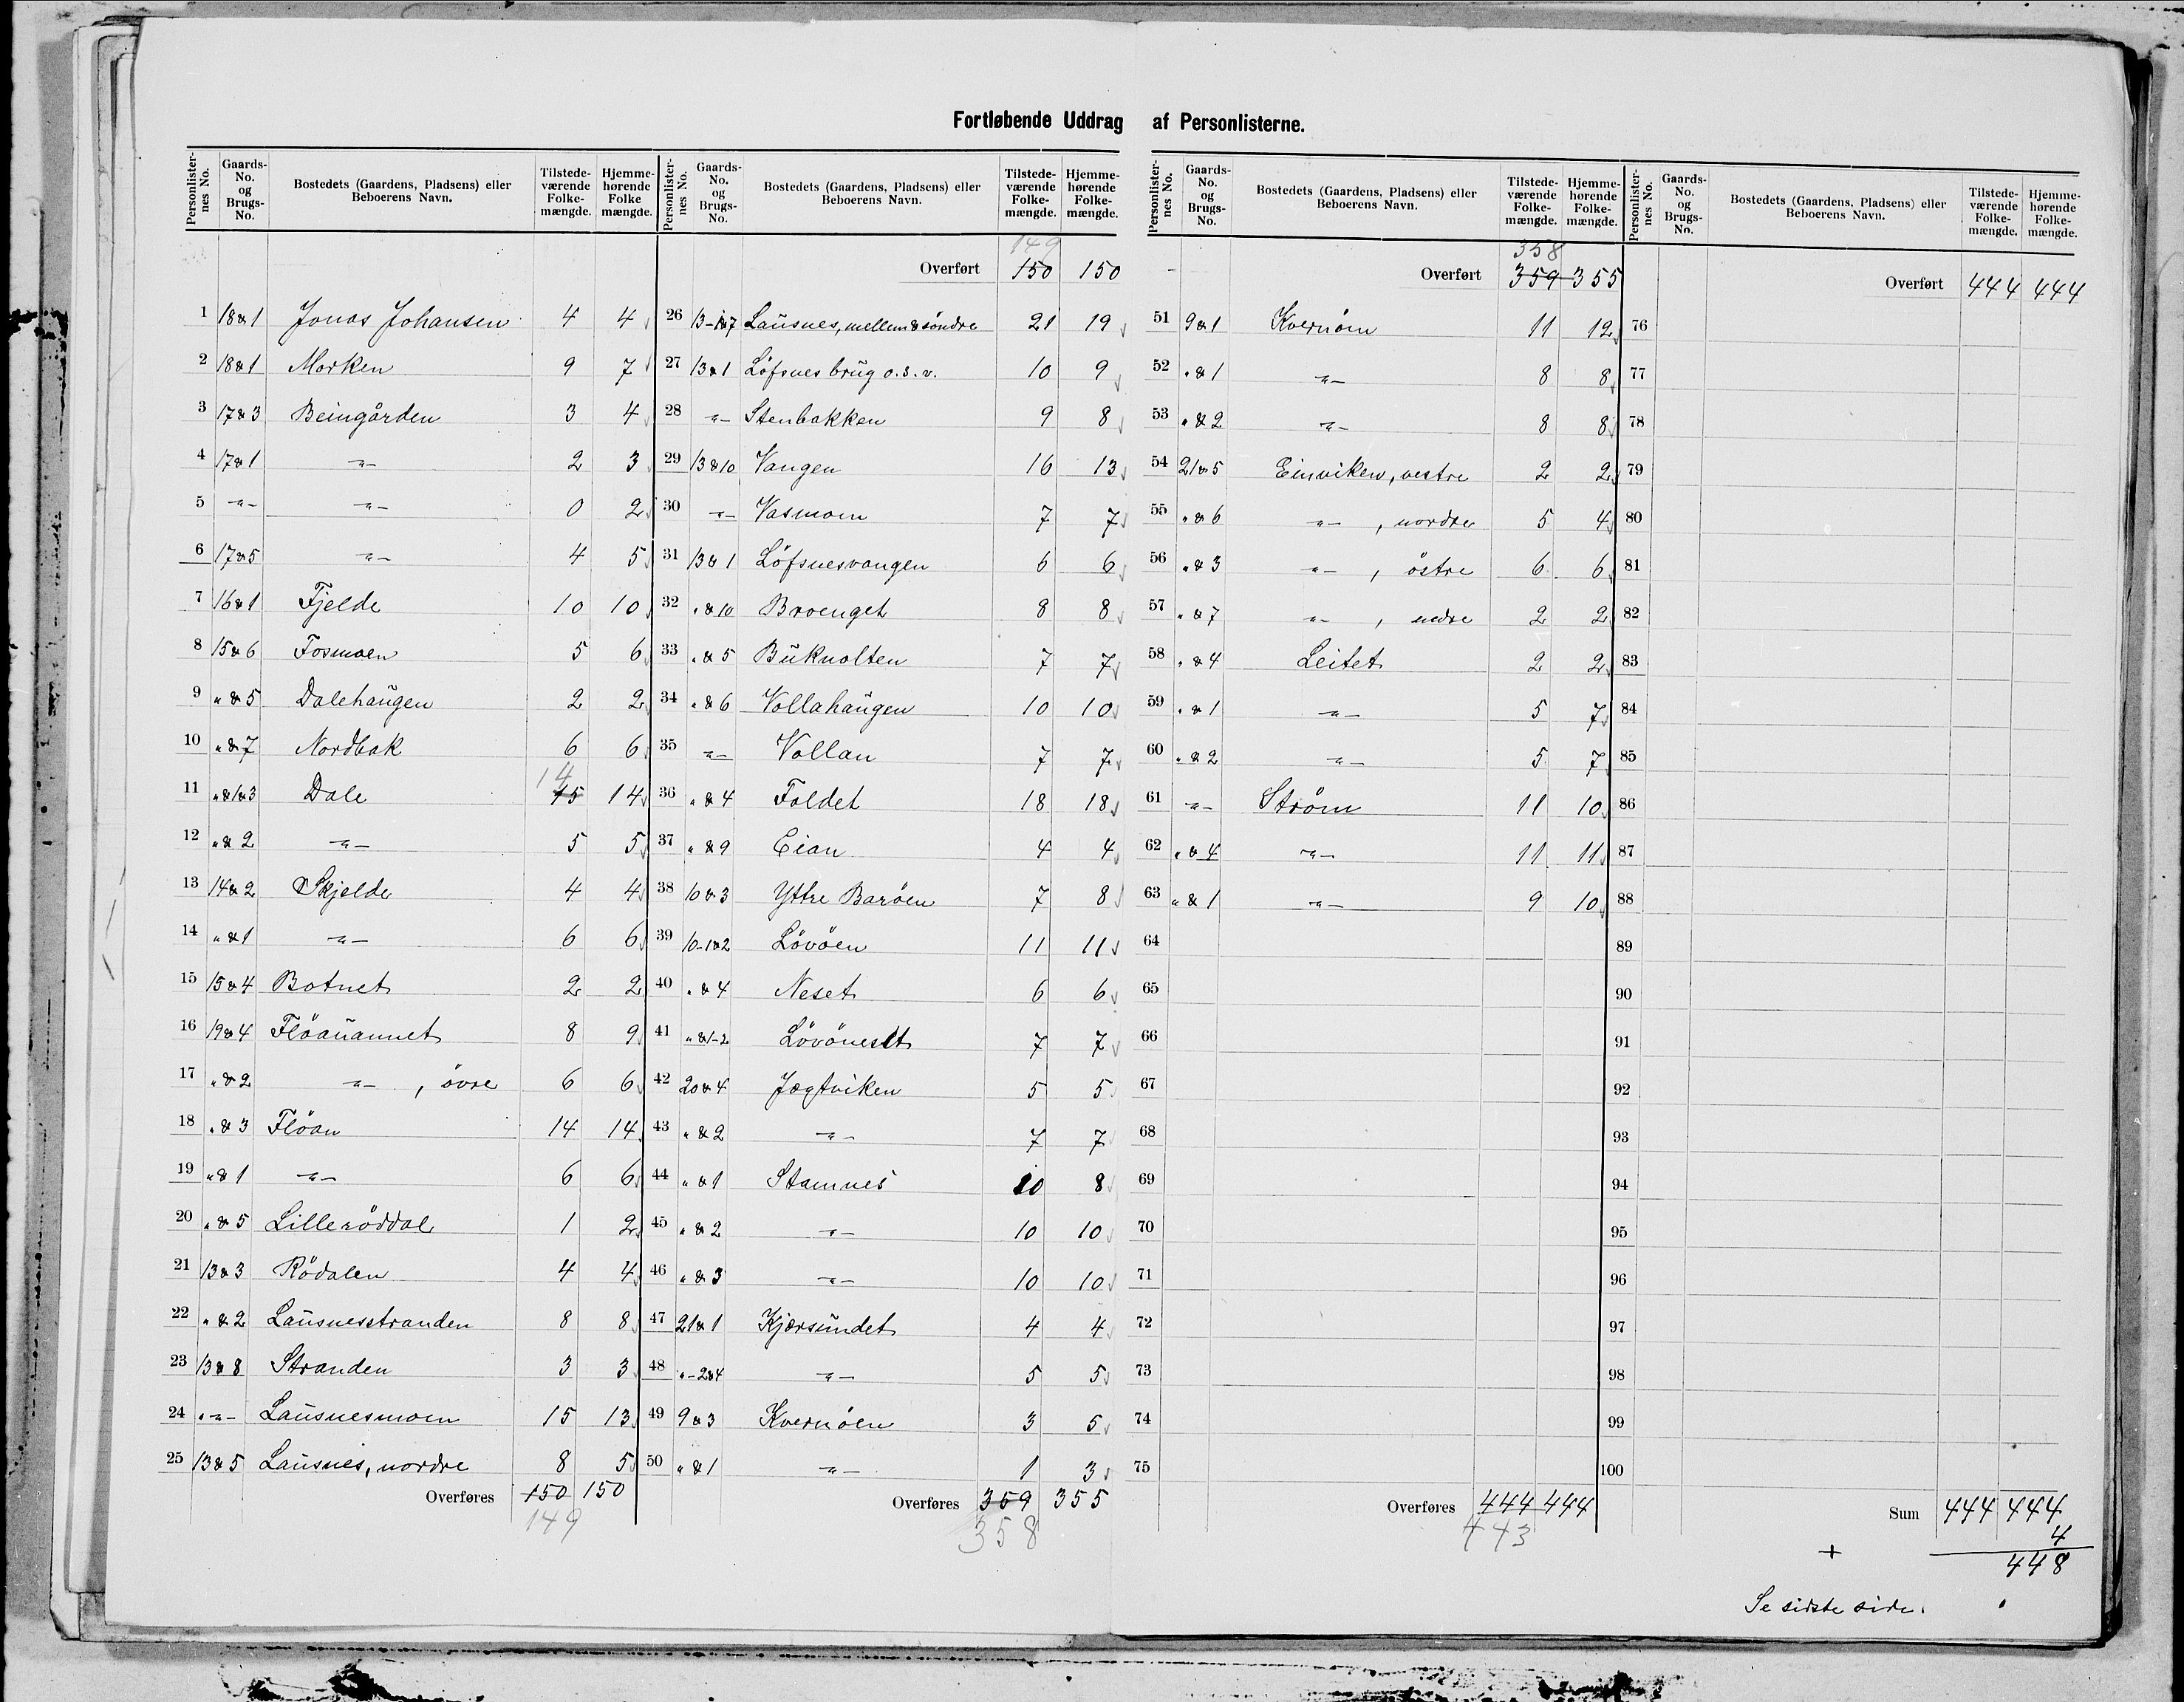 Fortløbende Uddrag af Personlisterne.
Personlisternes No. Gaards-No. og Brugs-No. Bostedets (Gaardens, Pladsens) eller Beboerens Navn. Tilstedeværende Folkemængde. Hjemmehørende Folkemængde.
1 18&1 Jonas Johansen 4 4
2 18&1 Morken 9 7
3 17&3 Beingården 3 4
4 17&1 -"- 2 3
5 -"- -"- 0 2
6 17&5 -"- 4 5
7 16&1 Fjelde 10 10
8 15&6 Fosmoen 5 6
9 "&5 Dalehaugen 2 2
10 "&7 Nordbak 6 6
14
11 "&1&3 Dale 15 14
12 "&2 -"- 5 5
13 14&2 Skjelde 4 4
14 "&1 -"- 6 6
15 15&4 Botnet 2 2
16 19&4 Flöauannet 8 9
17 "&2 -"- , övre 6 6
18 "&3 Flöan 14 14
19 "&1 -"- 6 6
20 "&5 Lilleröddal 1 2
21 13&3 Rödalen 4 4
22 "&2 Lausnesstranden 8 8
23 13&8 Stranden 3 3
24 -"- Lausnesmoen 15 13
25 13&5 Lausnes, nordre 8 5
Overføres 150 150
149
Personlisternes No. Gaards-No. og Brugs-No. Bostedets (Gaardens, Pladsens) eller Beboerens Navn. Tilstedeværende Folkemængde. Hjemmehørende Folkemængde.
149
Overført 150 150
26 13-1&7 Lausnes, mellem & söndre 21 19
27 13&1 Löfsnes brug o.s.v. 10 9
28 -"- Stenbakken 9 8
29 13&10 Vangen 16 13
30 -"- Vasmoen 7 7
31 13&1 Löfsnesvangen 6 6
32 "&10 Broenget 8 8
33 "&5 Buknolten 7 7
34 "&6 Vollahaugen 10 10
35 -"- Vollan 7 7
36 "&4 Foldet 18 18
37 "&9 Eian 4 4
38 10&3 Yttre Baröen 7 8
39 10-1&2 Lövöen 11 11
40 "&4 Neset 6 6
41 "&1-2 Lövöneset 7 7
42 20&4 Jægtviken 5 5
43 "&2 -"- 7 7
44 "&1 Stamnes 10 8
45 "&2 -"- 10 10
46 "&3 -"- 10 10
47 21&1 Kjærsundet 4 4
48 "-2&4 -"- 5 5
49 9&3 Kvernöen 3 5
50 "&1 -"- 1 3
Overføres 359 355
358
Personlisternes No. Gaards-No. og Brugs-No. Bostedets (Gaardens, Pladsens) eller Beboerens Navn. Tilstedeværende Folkemængde. Hjemmehørende Folkemængde.
358
Overført 359 355
51 9&1 Kvernöen 11 12
52 "&1 -"- 8 8
53 "&2 -"- 8 8
54 21&5 Einviken, vestre 2 2
55 "&6 -"- , nordre 5 4
56 "&3 -"- , östre 6 6
57 "&7 -"- , nedre 2 2
58 "&4 Leitet 2 2
59 "&1 -"- 5 7
60 "&2 -"- 5 7
61 -"- Ström 11 10
62 "&4 -"- 11 11
63 "&1 -"- 9 10
64
65
66
67
68
69
70
71
72
73
74
75
Overføres 444 444
443
Personlisternes No. Gaards-No. og Brugs-No. Bostedets (Gaardens, Pladsens) eller Beboerens Navn. Tilstedeværende Folkemængde. Hjemmehørende Folkemængde.
Overført 444 444
76
77
78
79
80
81
82
83
84
85
86
87
88
89
90
91
92
93
94
95
96
97
98
99
100
Sum 444 444
+ 4
448
Se sidste side.